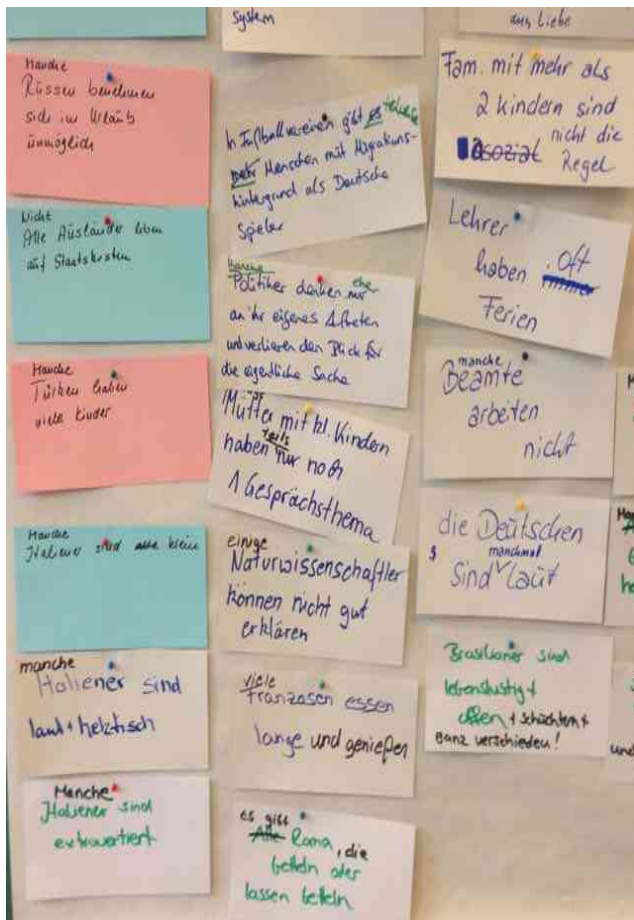 Manche
Russen benehmen
sich im Urlaub
unmöglich
Nicht
Alle Ausländer leben
auf Staatskosten
Manche
Türken haben
viele Kinder
Manche
Italiener sind alle klein
manche
Italiener sind
laut + hektisch
Manche
Italiener sind
extrovertiert
system
In Fußballvereinen gibt es teilweise
mehr Menschen mit Migrations-
hintergrund als Deutsche
Spieler
Manche
Politiker denken nur eher
an ihr eigenes Auftreten
und verlieren den Blick für
die eigentliche Sache
Mütter mit kl. Kindern
haben teils nur noch
1 Gesprächsthema
einige
Naturwissenschaftler
können nicht gut
erklären
viele
Franzosen essen
lange und genießen
es gibt
Alle Roma, die
betteln oder
lassen betteln
aus Liebe
Fam. mit mehr als
2 Kindern sind
nicht die
asozial Regel
Lehrer
haben oft
Ferien
manche
Beamte
arbeiten
nicht
die Deutschen
sind manchmal laut
Brasilianer sind
lebenslustig +
offen + schüchtern +
ganz verschieden!
und